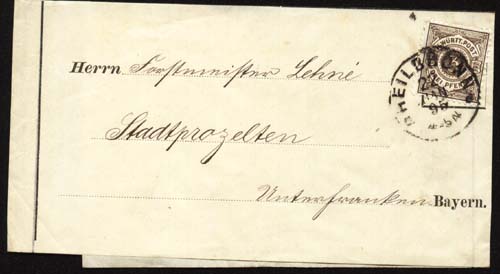 K. WÜRTT. POST
HEILBRONN
95
Herrn Forstmeister Lehné
Stadtprozelten
Unterfranken Bayern.